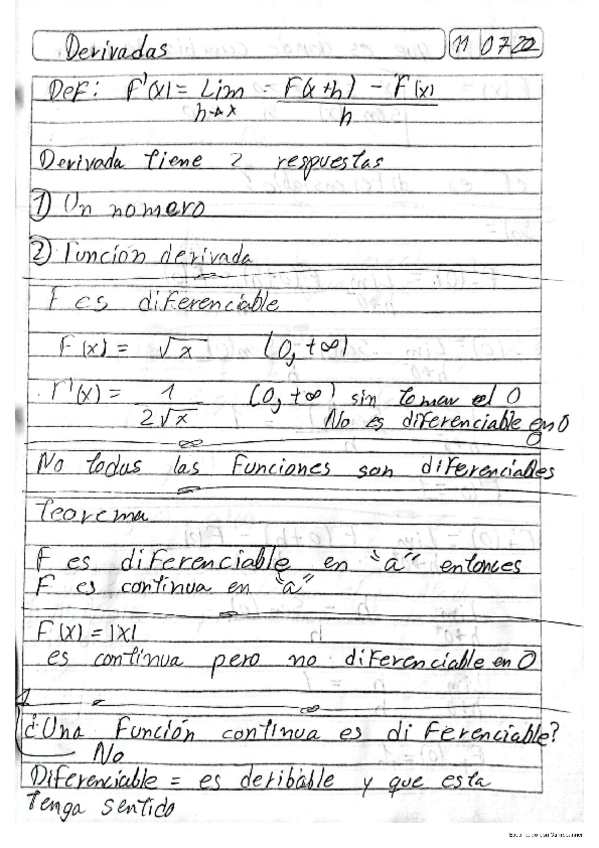 Derivadas 11 07 22
Def: F'(x) = Lim = F(x+h) - F(x)
h→x h
Derivada tiene 2 respuestas
1) Un nomero
2) Función derivada
F es diferenciable
F(x) = √x (0, +∞)
F'(x) = 1 (0, +∞) sin tomar el 0
2√x No es diferenciable en 0
0
No todas las Funciones son diferenciables
Teorema
F es diferenciable en "a" entonces
F es continua en "a"
F(x) = |x|
es continua pero no diferenciable en 0
¿Una Función continua es diferenciable?
No
Diferenciable = es deribable y que esta
Tenga sentido